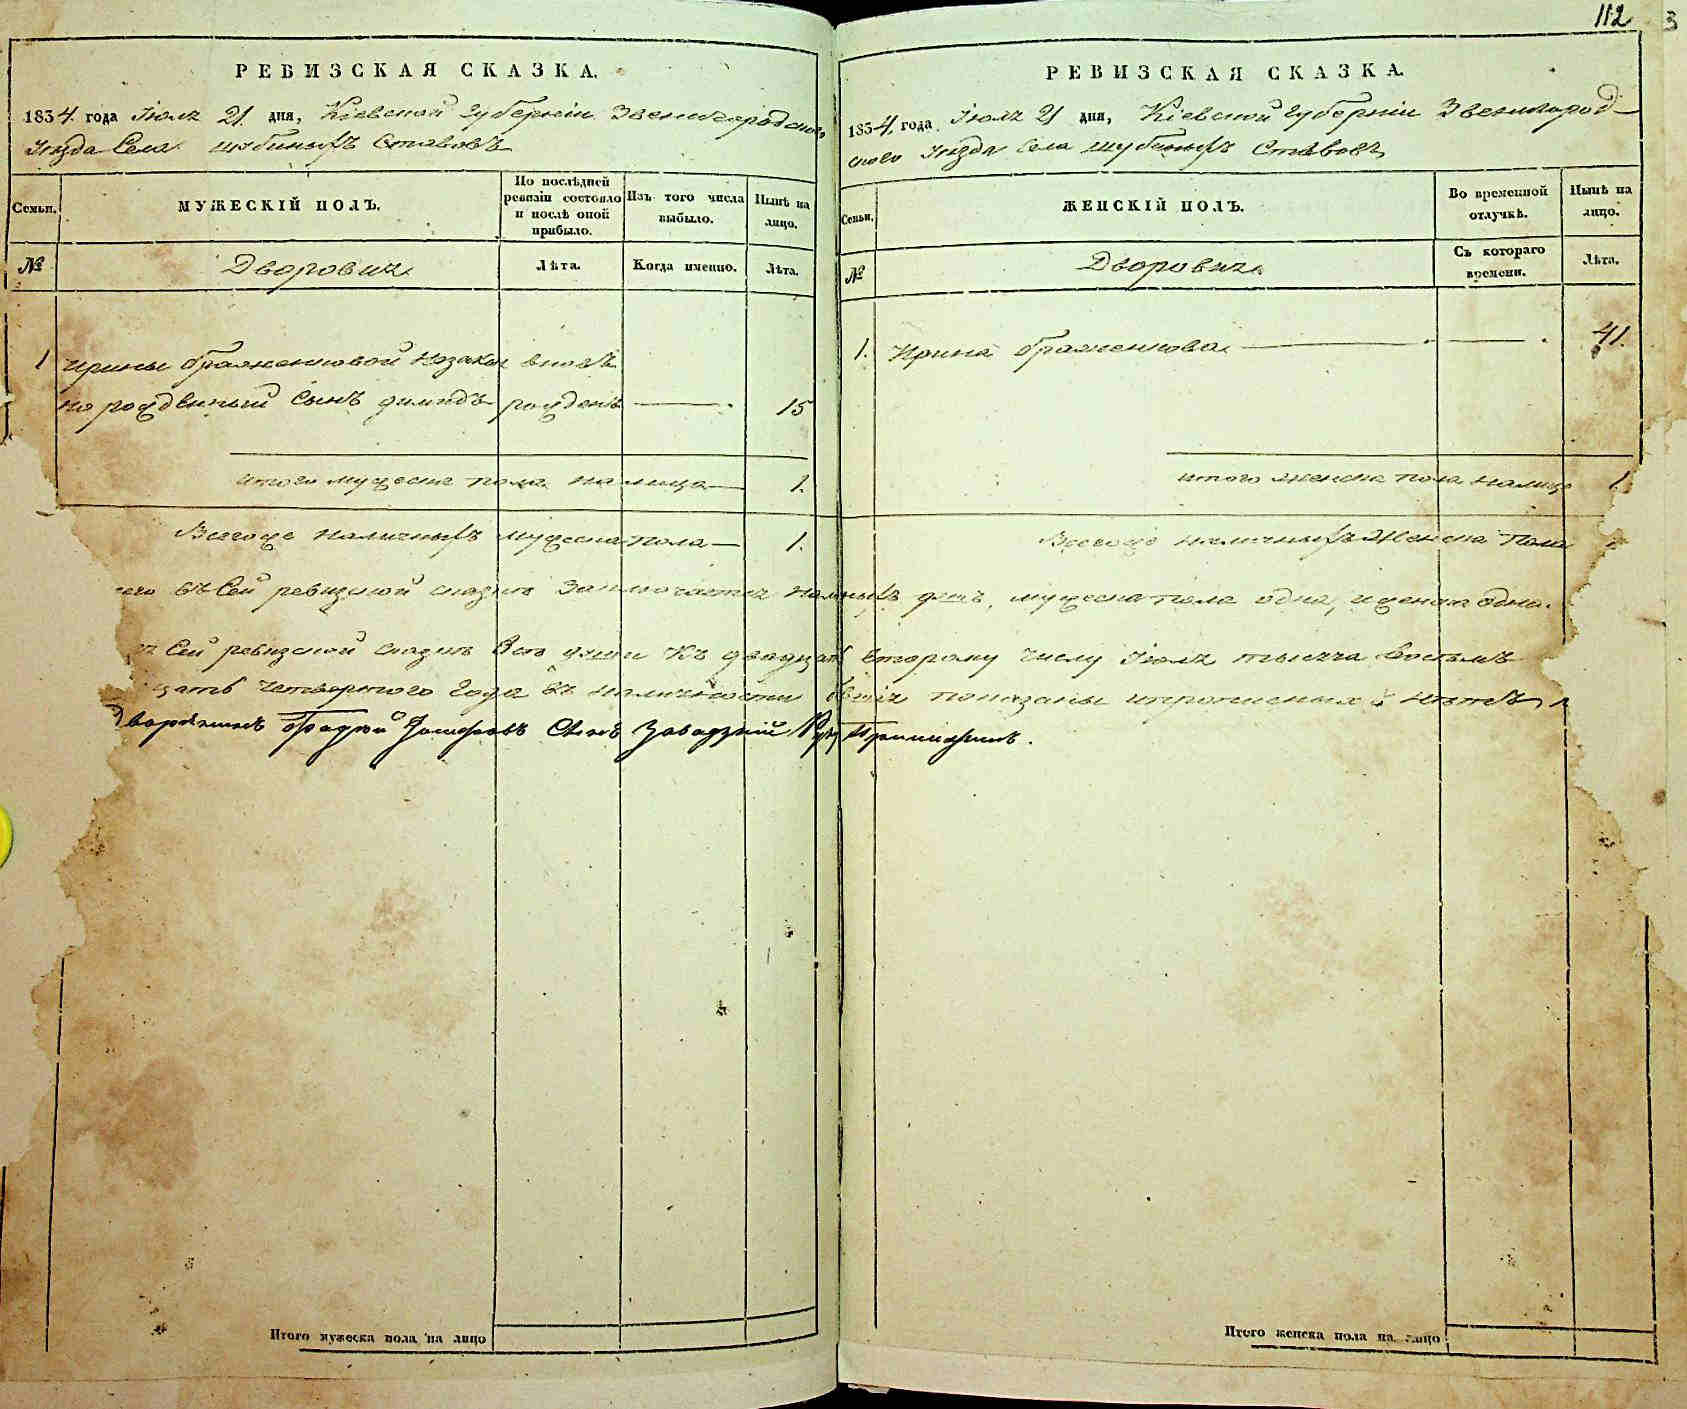 112
3
РЕВИЗСКАЯ СКАЗКА.
1834 года Іюля 21 дня, Кіевской губерніи Звенигородского
Уезда Села Шубиныхъ Ставовъ
Семьи.
МУЖЕСКІЙ ПОЛЪ.
По послѣдней ревизіи состояло и послѣ оной прибыло.
Изъ того числа выбыло.
Нынѣ на лицо.
№
Дворовыя
Лѣта.
Когда именно.
Лѣта.
1 Ирины вновь
но рожденный Сынъ рожденъ 15
итого мужеска пола на лицо 1.
Всегоже наличныхъ мужеска пола 1.
Итого мужеска пола на лицо
РЕВИЗСКАЯ СКАЗКА.
1834 года Іюля 21 дня, Кіевской губерніи Звенигород
ского Уезда Села Шубиныхъ Ставовъ
Семьи.
ЖЕНСКІЙ ПОЛЪ.
Во временной отлучкѣ.
Нынѣ на лицо.
№
Дворовыя
Съ котораго времени.
Лѣта.
1. Ирина 41.
итого женска пола на лицо 1
Всегоже наличныхъ Женска пола
въ Сей ревизской сказке заключается душъ, мужеска пола одна, и женска одна.
Сей ревизской сказке Все души Къ двадцать второму числу Іюля тысяча восемь
четвертого года въ наличности показаны и прописныхъ нетъ
Дворянинъ Сынъ Завадзкій
Итого женска пола на лицо